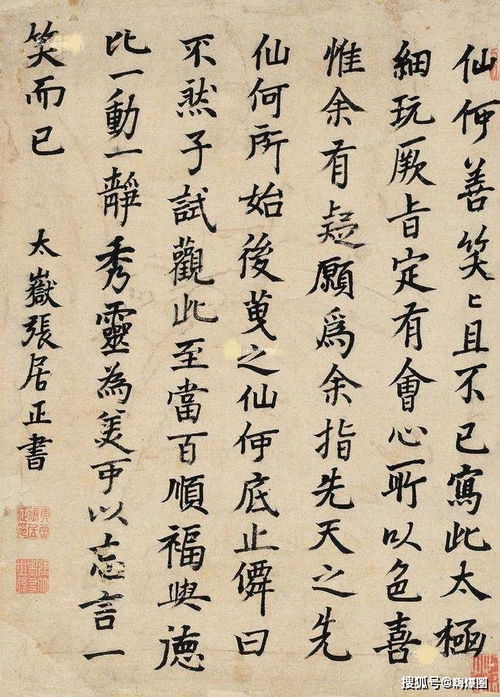 仙何善笑〻且不已寫此太極
細玩厥旨定有會心所以色喜
惟余有疑願為余指先天之先
仙何所始後之仙何底止僊曰
不然子試觀此至當百順福與德
比一動一靜秀靈為美可以忘言一
笑而已
太嶽張居正書
搜狐号@嗨爆圈